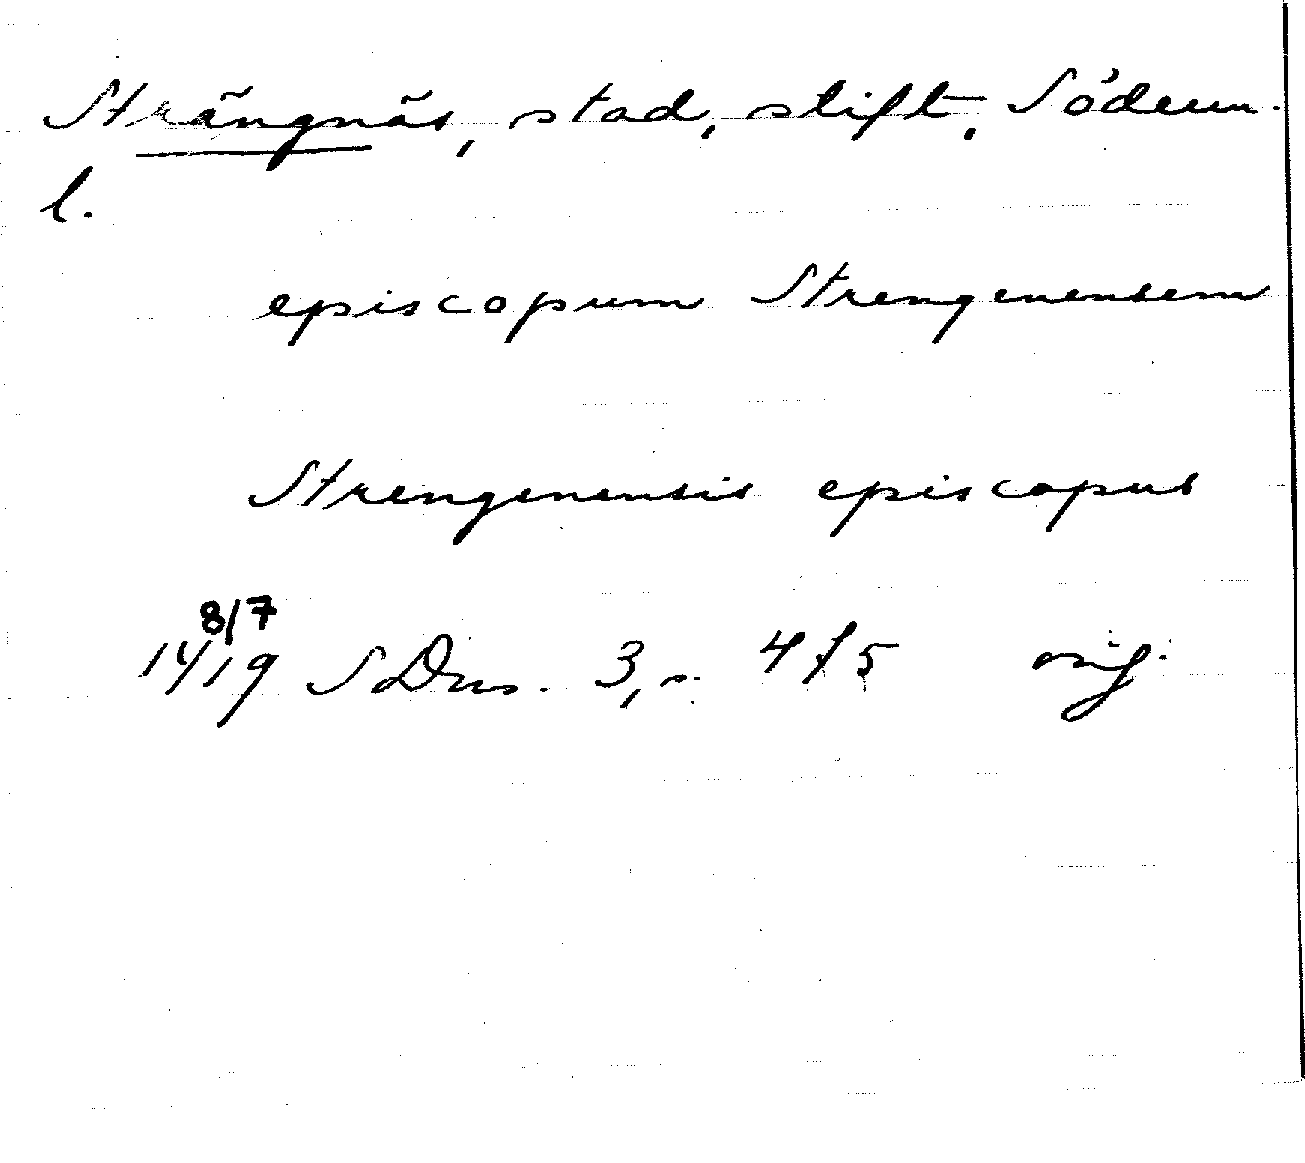 Strängnäs, stad, stift, Söderm.
l.
episcopum Strengenensem
Strengenensis episcopus
8/7
1419 SDns. 3, s. 415 orig.